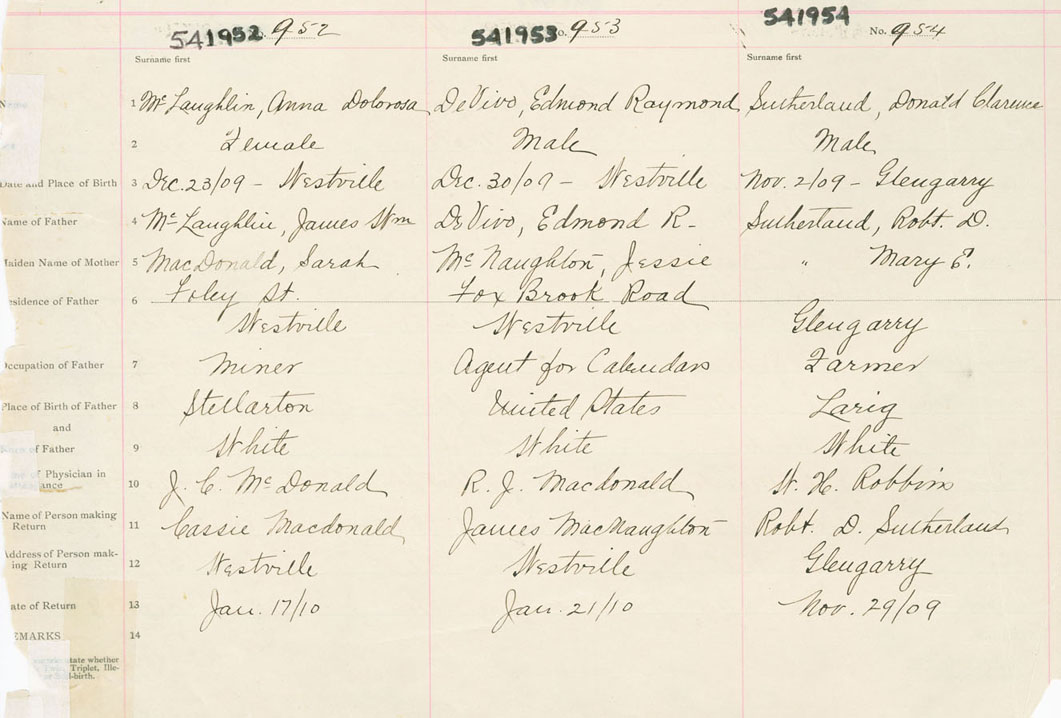 541952 952 541953 o. 953 541954 No. 954
Surname first Surname first Surname first
Name 1 McLaughlin, Anna Dolorosa DeVivo, Edmond Raymond Sutherland, Donald Clarence
2 Female Male Male
Date and Place of Birth 3 Dec. 23/09 - Westville Dec. 30/09 - Westville Nov. 2/09 - Glengarry
Name of Father 4 McLaughlin, James Wm DeVivo, Edmond R- Sutherland, Robt. D.
Maiden Name of Mother 5 MacDonald, Sarah McNaughton, Jessie " Mary E.
esidence of Father 6 Foley St. Fox Brook Road
Westville Westville Glengarry
Occupation of Father 7 Miner Agent for Calendars Farmer
Place of Birth of Father 8 Stellarton United States Larig
and
of Father 9 White White White
of Physician in
ance 10 J. C. McDonald R. J. Macdonald W. H. Robbins
Name of Person making
Return 11 Cassie Macdonald James MacNaughton Robt. D. Sutherland
Address of Person mak-
ing Return 12 Westville Westville Glengarry
ate of Return 13 Jan. 17/10 Jan. 21/10 Nov. 29/09
EMARKS 14
state whether
Triplet, Ille-
-birth.